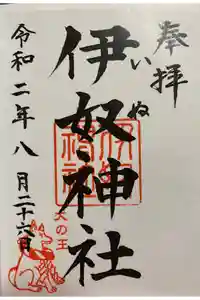 奉拝
いぬ
伊奴神社
伊奴神社
犬の王
令和二年八月二十六日